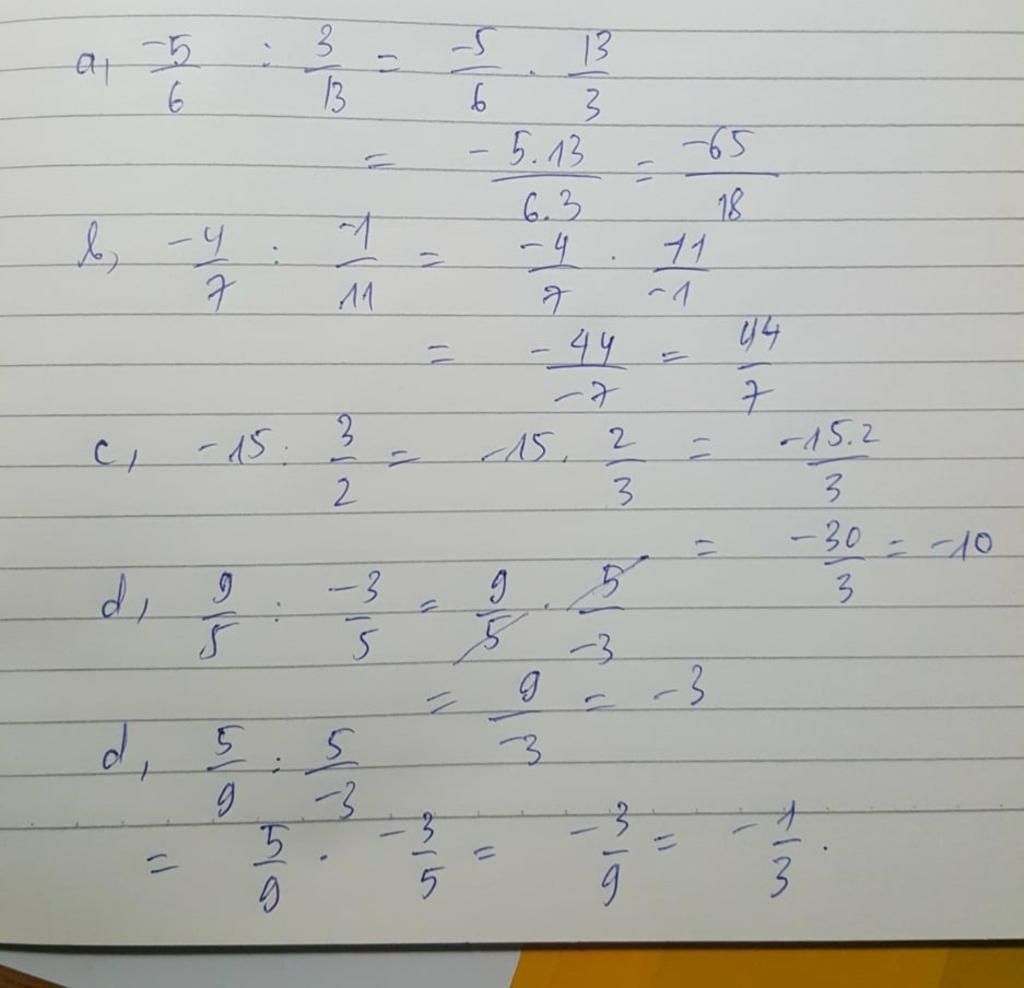 a, -5/6 : 3/13 = -5/6 . 13/3
= -5.13/6.3 = -65/18
b, -4/7 : -1/11 = -4/7 . 11/-1
= -44/-7 = 44/7
c, -15 : 3/2 = -15 . 2/3 = -15.2/3
= -30/3 = -10
d, 9/5 : -3/5 = 9/5 . 5/-3
= 9/-3 = -3
d, 5/9 : 5/-3
= 5/9 . -3/5 = -3/9 = -1/3.